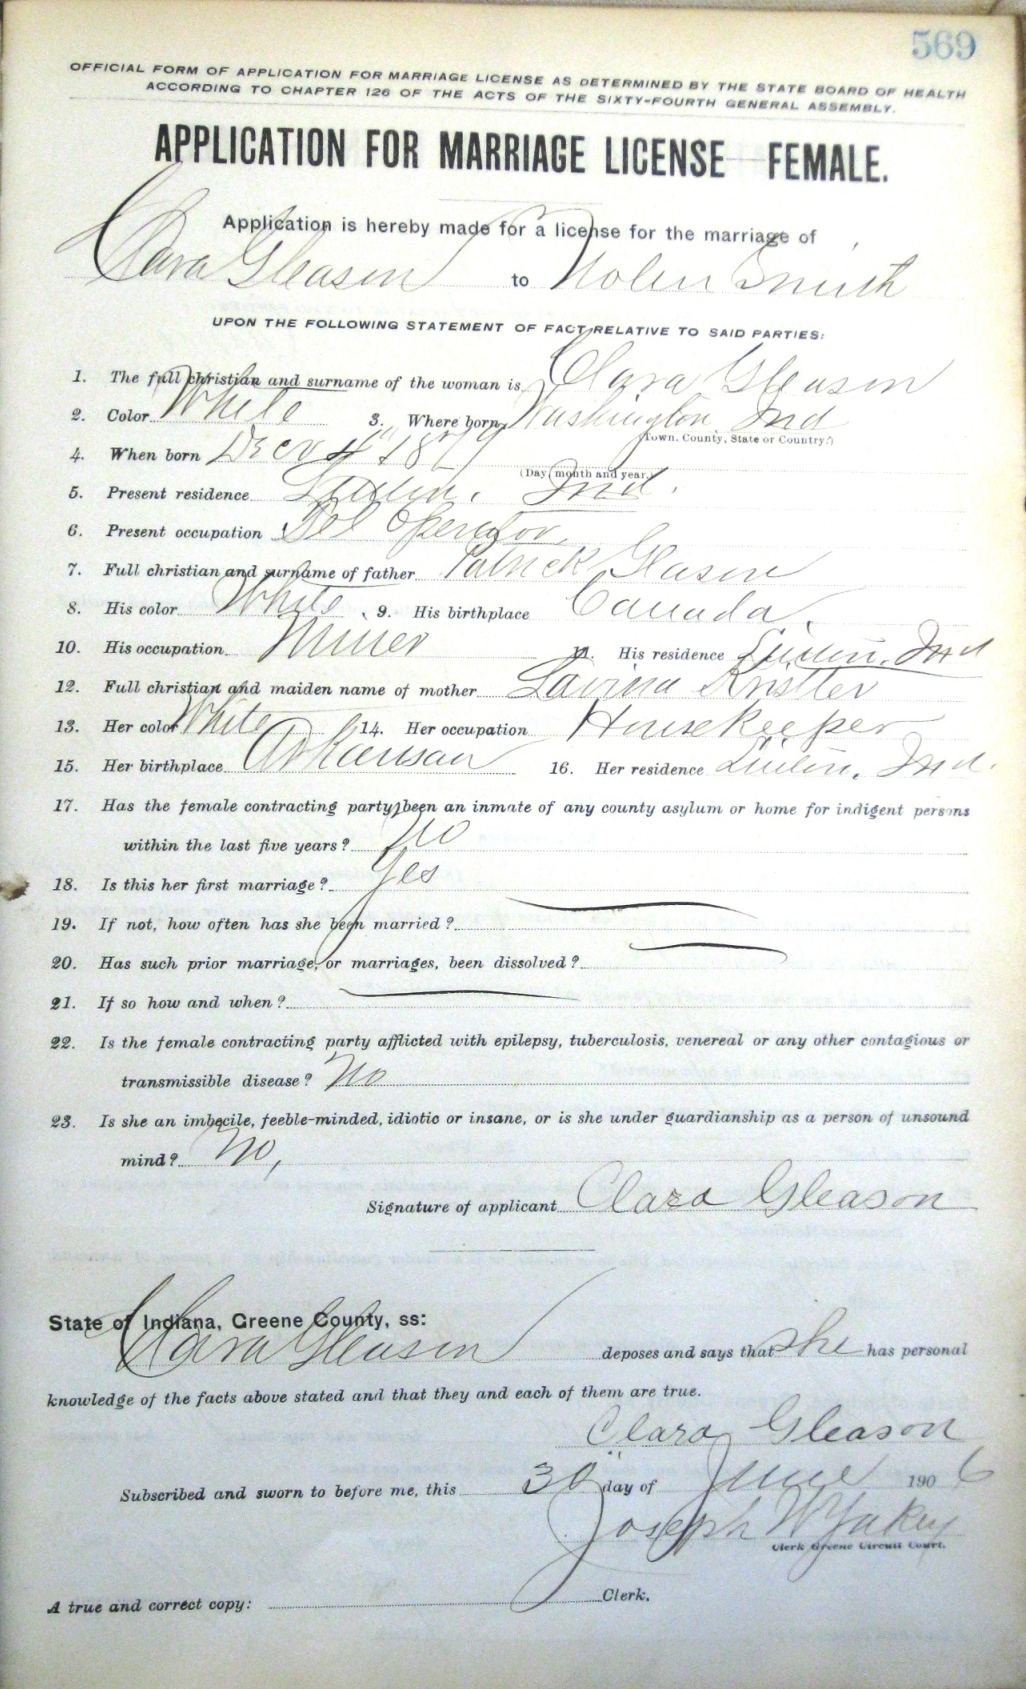 569
OFFICIAL FORM OF APPLICATION FOR MARRIAGE LICENSE AS DETERMINED BY THE STATE BOARD OF HEALTH
ACCORDING TO CHAPTER 126 OF THE ACTS OF THE SIXTY-FOURTH GENERAL ASSEMBLY.
APPLICATION FOR MARRIAGE LICENSE FEMALE.
Application is hereby made for a license for the marriage of
Clara Gleason to Nolen Smith
UPON THE FOLLOWING STATEMENT OF FACT RELATIVE TO SAID PARTIES:
1. The full christian and surname of the woman is Clara Gleason
2. Color White 3. Where born Washington, Ind
(Town, County, State or Country.)
4. When born Dec 4"
(Day, month and year.)
5. Present residence Linton, Ind.
6. Present occupation Tel Operator,
7. Full christian and surname of father Patrick Gleason
8. His color White, 9. His birthplace Canada.
10. His occupation Miner 11. His residence Linton, Ind
12. Full christian and maiden name of mother Lavina
13. Her color White 14. Her occupation Housekeeper
15. Her birthplace Arkansas 16. Her residence Linton, Ind.
17. Has the female contracting party been an inmate of any county asylum or home for indigent persons
within the last five years? No
18. Is this her first marriage? Yes
19. If not, how often has she been married?
20. Has such prior marriage, or marriages, been dissolved?
21. If so how and when?
22. Is the female contracting party afflicted with epilepsy, tuberculosis, venereal or any other contagious or
transmissible disease? No
23. Is she an imbecile, feeble-minded, idiotic or insane, or is she under guardianship as a person of unsound
mind? No,
Signature of applicant Clara Gleason
State of Indiana, Greene County, ss:
Clara Gleason deposes and says that she has personal
knowledge of the facts above stated and that they and each of them are true.
Clara Gleason
Subscribed and sworn to before me, this 30 day of June 1906
Joseph W Yakey
Clerk Greene Circuit Court.
A true and correct copy: Clerk.